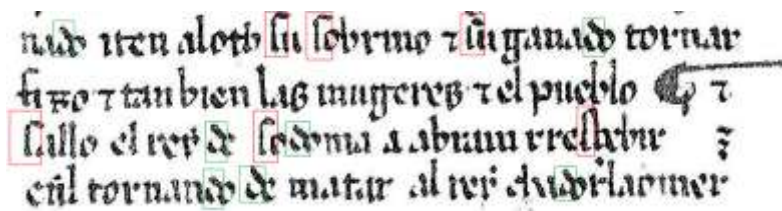 nado iten aloth su sobrino ⁊ su ganado tornar
fizo ⁊ tan bien las mugeres ⁊ el pueblo ⁊
sallo el rey de sodoma a abram rresçebir
tornando de matar al rey